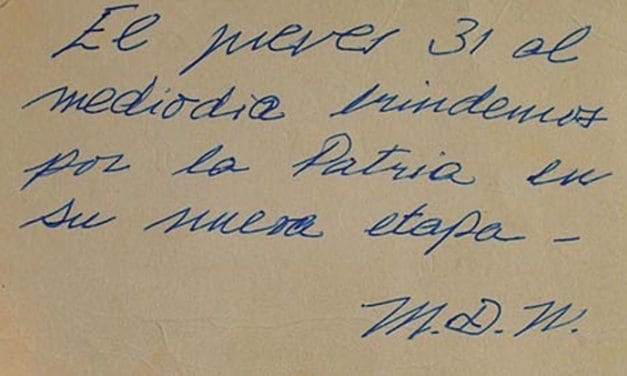 El jueves 31 al
mediodia brindemos
por la Patria en
su nueva etapa -
M.D.N.